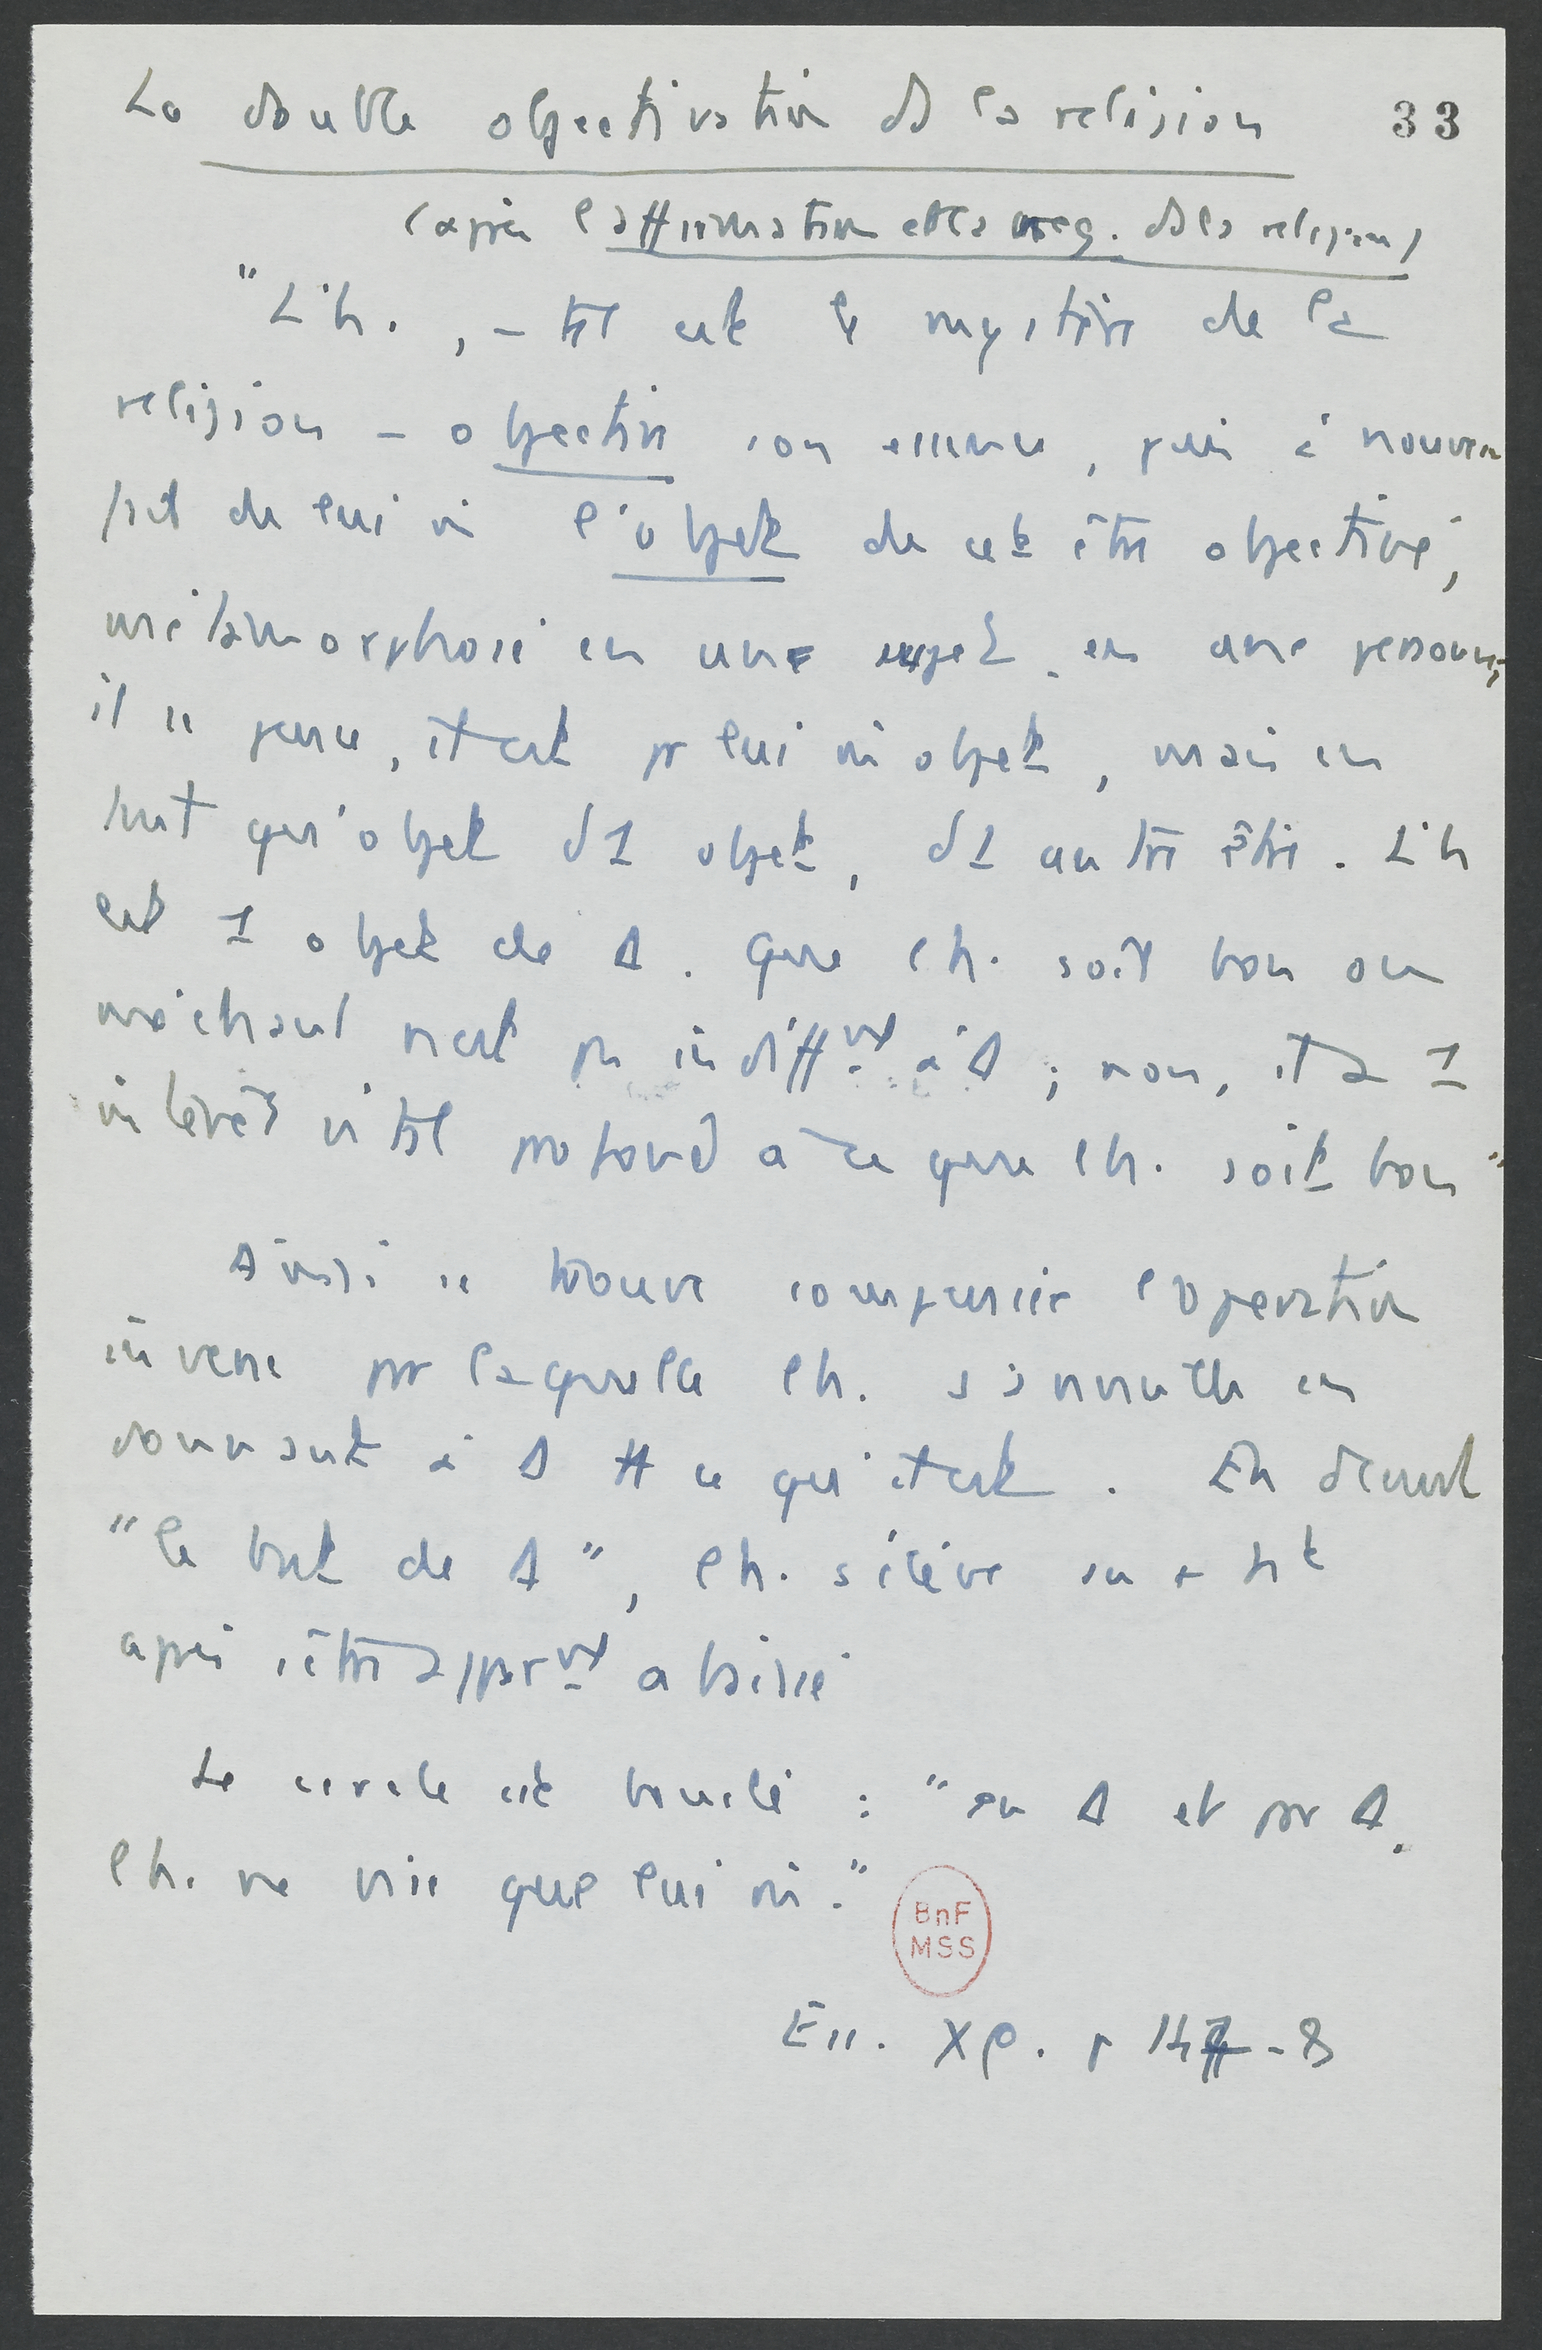 La double objectivation d la religion 33
(après l'affirmation et la neg. d la religion)
"L'h., – tel est le mystère de la
religion – objective son essence, puis à nouveau
fait de lui m l'objet de cet être objectivé,
métamorphosé en un sujet, en une personne;
il se pense, il est pr lui m objet, mais en
tant qu'objet d1 objet, d1 autre être. L'h
est 1 objet de Δ. Que l h. soit bon ou
méchant n'est pas indifft à Δ ; non, il a 1
intérêt vital profond à ce que l h. soit bon"
Ainsi se trouve compensée l'opération
inverse par laquelle l h. s'annule en
donnant à Δ tt ce qu'il est. En devenant
"le but de Δ", l h. s'élève
après s'être appart abaissé
Le cercle est bouclé : "en Δ et par Δ,
l h. ne vise que lui m."
BnF
MSS
Ess. Xρ. p 147-8